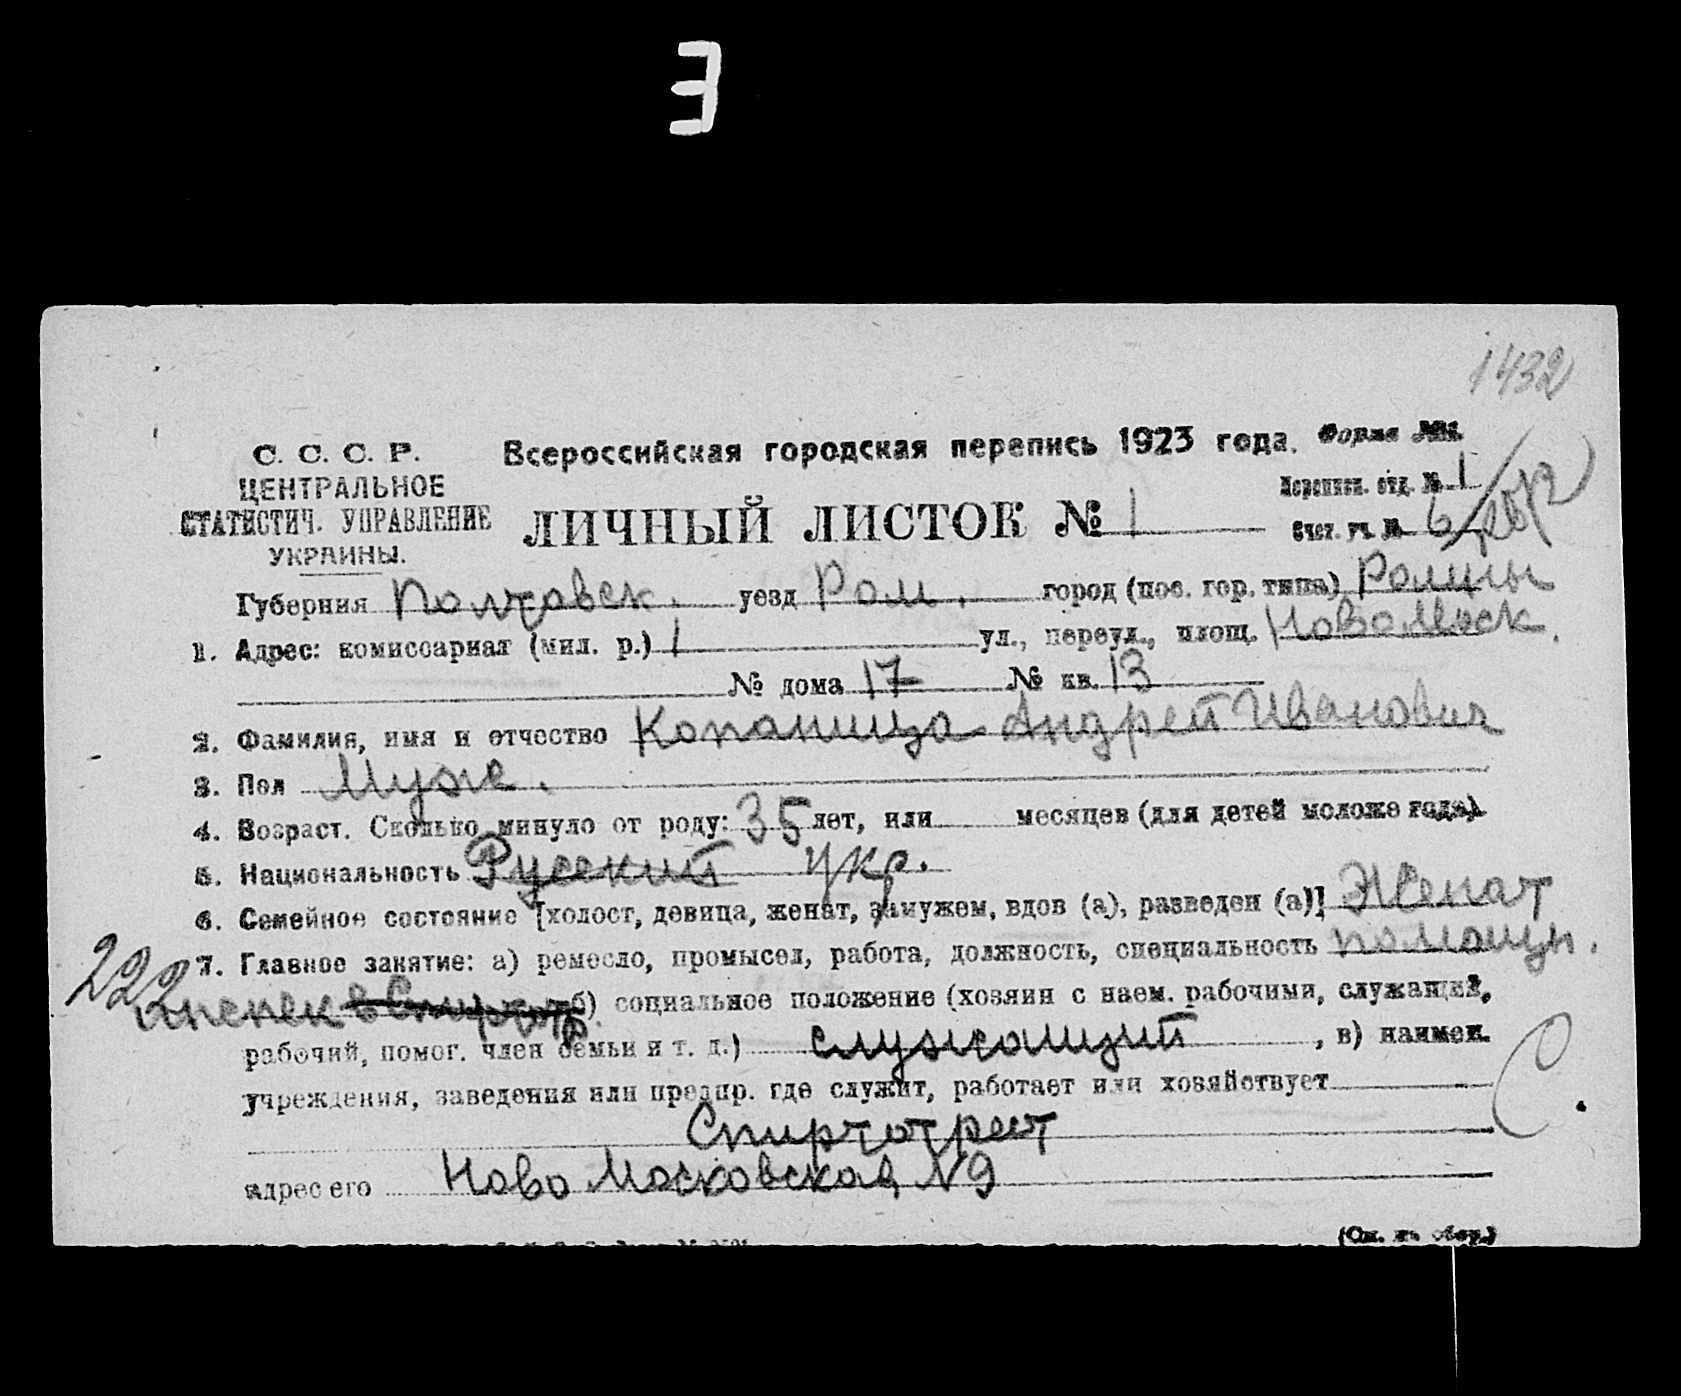 3
1432
С. С. С. Р.
ЦЕНТРАЛЬНОЕ
СТАТИСТИЧ. УПРАВЛЕНИЕ
УКРАИНЫ.
Всероссийская городская перепись 1923 года.
Форма №1.
ЛИЧНЫЙ ЛИСТОК № 1
Переписн. отд. № 1
Счет. уч. № 6
Губерния Полтавск. уезд Ром. город (пос. гор. типа) Ромны
1. Адрес: комиссариат (мил. р.) 1 ул., переул., площ. Новомоск.
№ дома 17 № кв. 13
2. Фамилия, имя и отчество Копаница Андрей Иванович
3. Пол Муж.
4. Возраст. Сколько минуло от роду: 35 лет, или месяцев (для детей моложе года).
5. Национальность Русский Укр.
6. Семейное состояние [холост, девица, женат, замужем, вдов (а), разведен (а)] Женат
7. Главное занятие: а) ремесло, промысел, работа, должность, специальность помощн.
222
инспек в б) социальное положение (хозяин с наем. рабочими, служащий,
рабочий, помог. член семьи и т. д.) служащий , в) наимен.
учреждения, заведения или предпр. где служит, работает или хозяйствует
С.
Спиртотрест
адрес его Ново Московская N9
(См. на обор.)